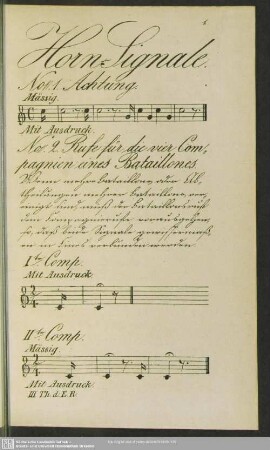 Horn-Signale.
No. 1. Achtung.
Mässig.
Mit Ausdruck.
No. 2. Rufe für die vier Com-
pagnien eines Bataillones.
Wenn mehre Bataillone oder Ab-
theilungen mehrer Bataillone ver-
einigt sind, muß der Bataillonsruf
dem Compagnierufe vorausgehen,
so, daß beide Signale
in Eins verbunden werden.
I.te Comp.
Mit Ausdruck.
II.te Comp.
Mässig.
Mit Ausdruck.
III. Th. d. E. R.